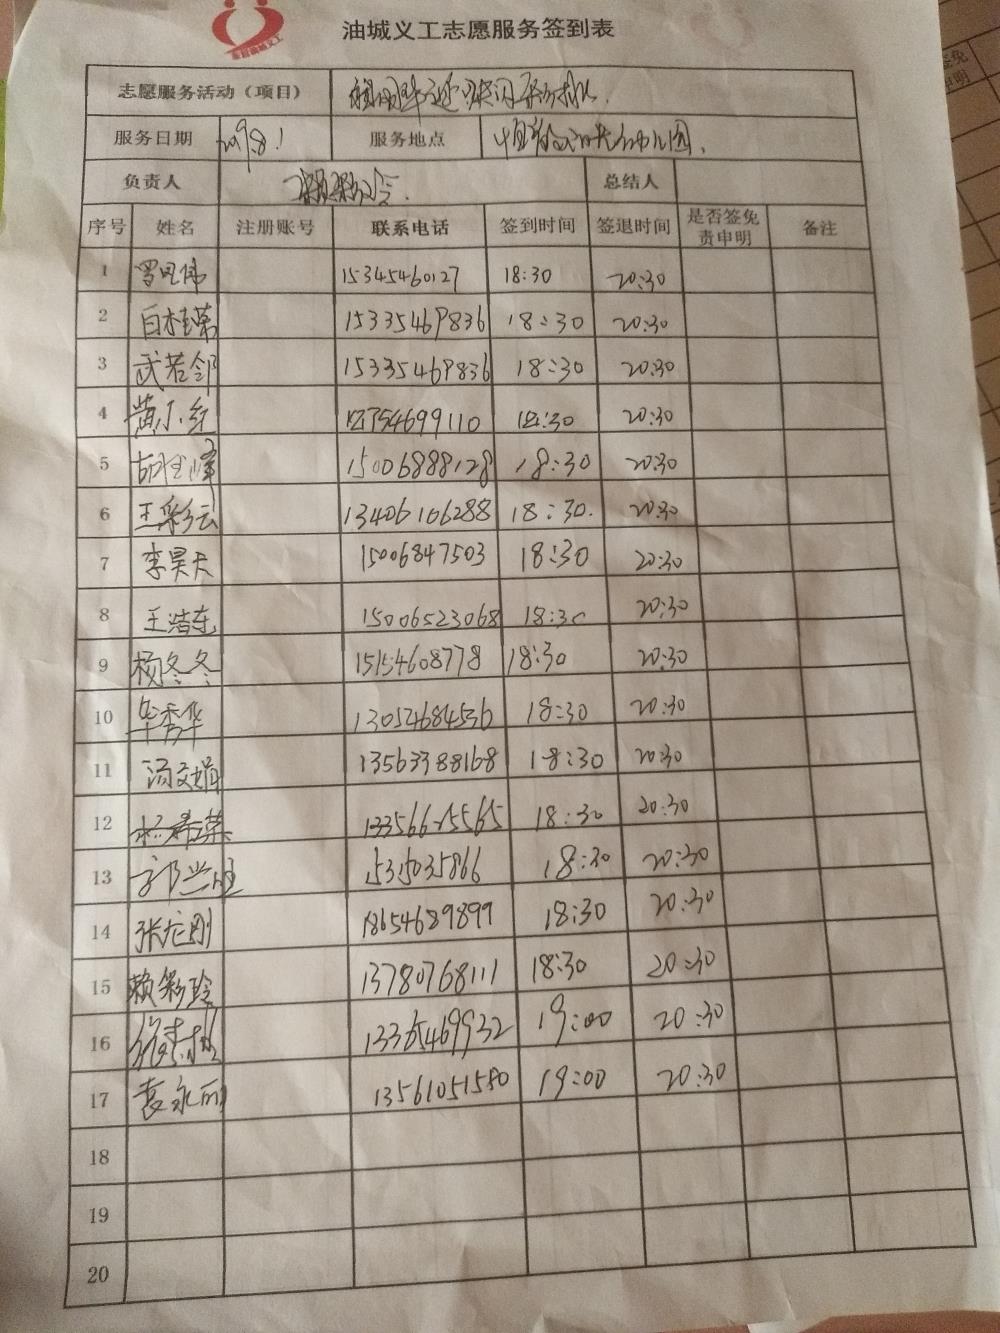 油城义工志愿服务签到表
志愿服务活动（项目）
服务日期 2019.8.1 服务地点 幼儿园.
负责人 总结人
序号 姓名 注册账号 联系电话 签到时间 签退时间 是否签免责申明 备注
1 15345460127 18:30 20:30
2 白桂荣 15335469836 18:30 20:30
3 武若邻 15335469836 18:30 20:30
4 黄小红 54699110 18:30 20:30
5 15006888128 18:30 20:30
6 王彩云 13406166288 18:30. 20:30
7 李昊天 15006847503 18:30 20:30
8 王洁东 15006523068 18:30 20:30
9 杨冬冬 15154608778 18:30 20:30
10 毕秀华 13054684536 18:30 20:30
11 汤文娟 13563388168 18:30 20:30
12 杨春荣 18:30 20:30
13 15315035866 18:30 20:30
14 张龙刚 18654689899 18:30 20:30
15 赖彩玲 13780768111 18:30 20:30
16 19:00 20:30
17 袁永丽 13561051580 19:00 20:30
18
19
20